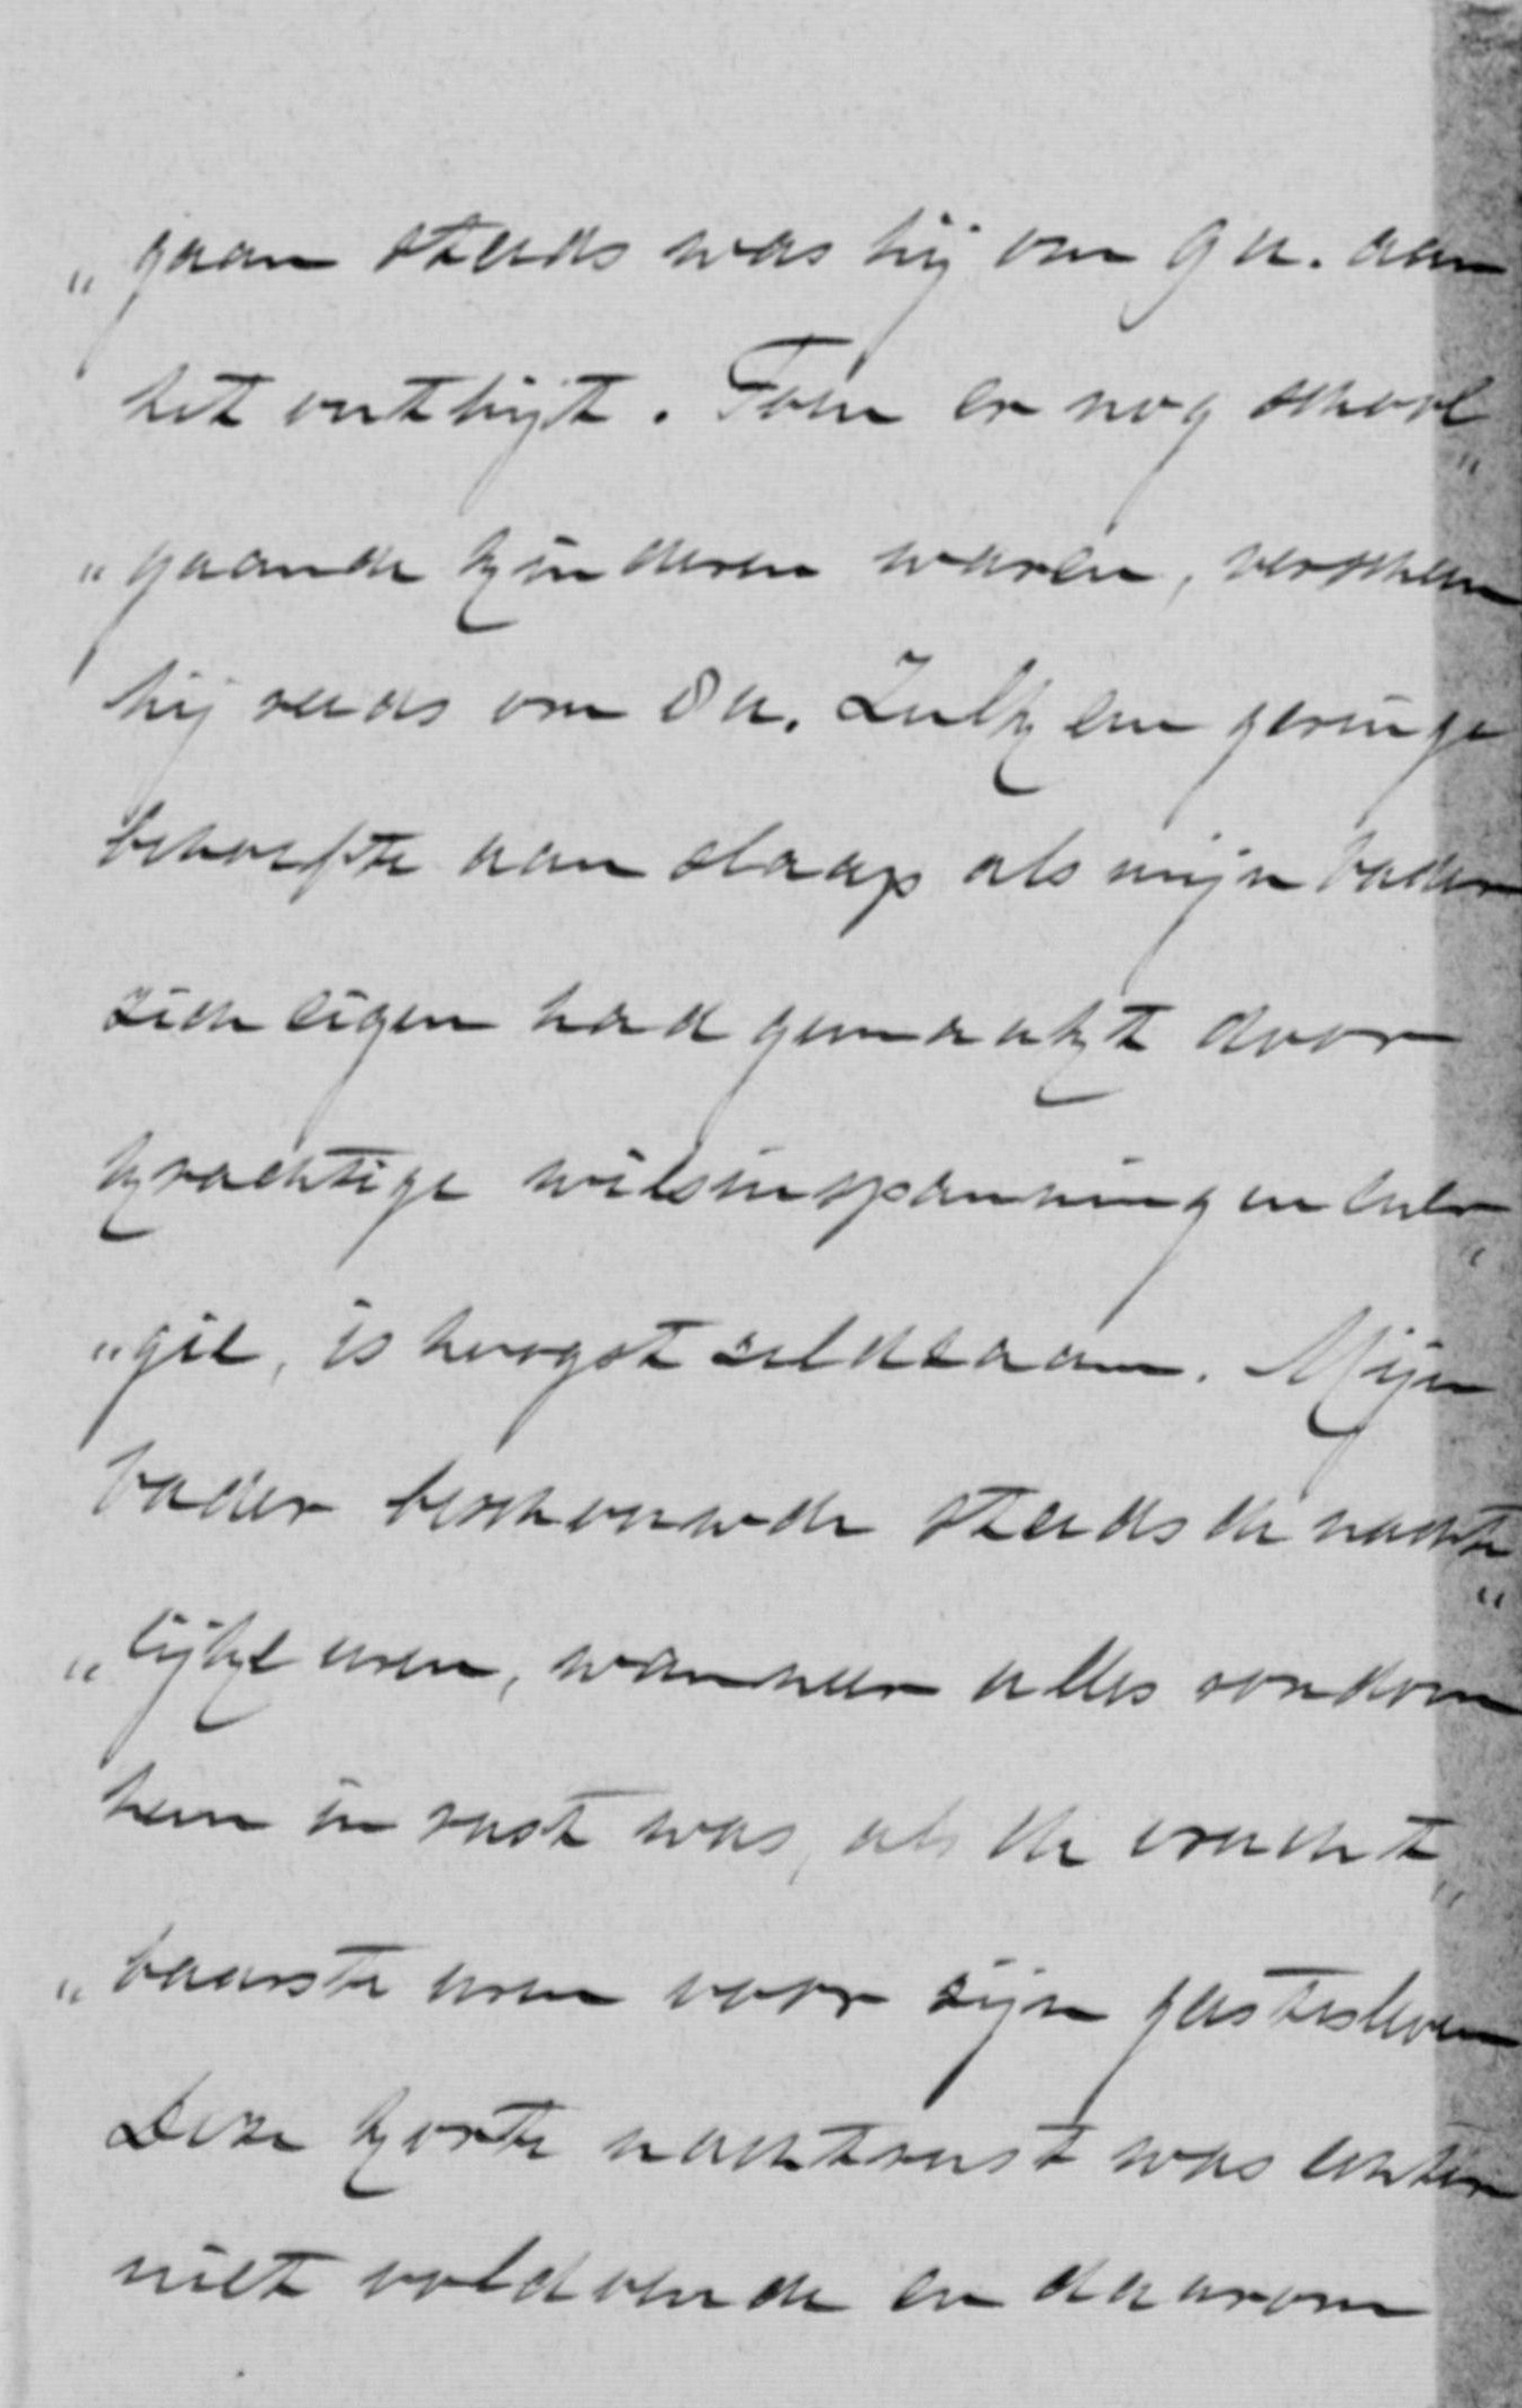 „gaan steeds was hij om 9 u. aan
het ontbijt. Toen er nog school„
„gaande kinderen waren, verscheen
hij reeds om 8 u. Zulk een geringe
behoefte aan slaap als mijn vader
zich eigen had gemaakt door
krachtige wilsinspanning en ener„
„gie, is hoogst zeldzaam. Mijn
vader beschouwde steeds de nachte„
„lijke uren, wanneer alles rondom
hem in rust was, als de vrucht„
„baarste uren voor zijn geestesleven
Deze korte nachtrust was echter
niet voldoende en daarom